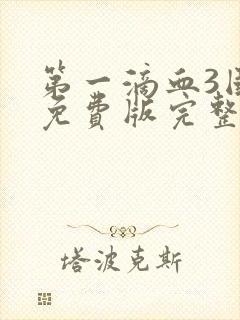 第一滴血3国
免费版完整
塔波克斯